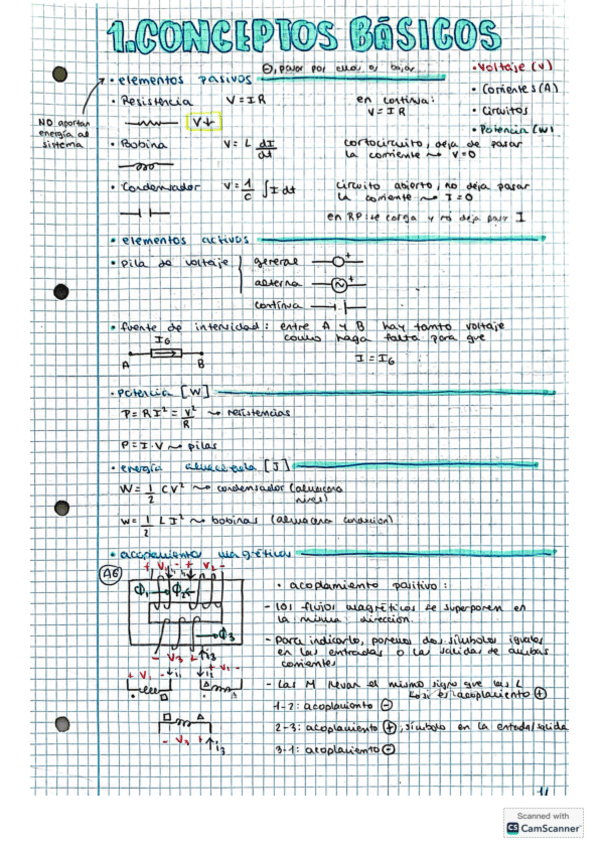 1. CONCEPTOS BÁSICOS
• elementos pasivos
pasar por ellos es bajar
• Voltaje (V)
• Corrientes (A)
• Circuitos
• Potencia (W)
NO aportan
energía al
sistema
• Resistencia V = IR
en continua:
V = IR
V↓
• Bobina V = L dI/dt
cortocircuito, deja de pasar
la corriente ⇝ V=0
• Condensador V = 1/C ∫ I dt
circuito abierto, no deja pasar
la corriente ⇝ I=0
en RP: se carga y no deja pasar I
• elementos activos
• pila de voltaje
general
alterna
continua
• fuente de intensidad: entre A y B hay tanto voltaje
como haga falta para que
I = IG
A B
• Potencia [W]
P = RI² = V²/R ⇝ resistencias
P = I·V ⇝ pilas
• energía almacenada [J]
W = 1/2 CV² ⇝ condensador
W = 1/2 LI² ⇝ bobinas
• acoplamiento magnético
A6
+ V1 - + V2 -
Φ1 Φ2
Φ3
- V3 + i3
+ V1 - i1
+ V2 -
- V3 + i3
• acoplamiento positivo:
- los flujos magnéticos se superponen en
la misma dirección.
- Para indicarlo, ponemos dos símbolos iguales
en las entradas o la salidas de ambas
corrientes
- Las M llevan el mismo signo que las L
si es acoplamiento ⊕
1-2: acoplamiento ⊖
2-3: acoplamiento ⊕, símbolo en la entrada/salida
3-1: acoplamiento ⊖
Scanned with
CS CamScanner